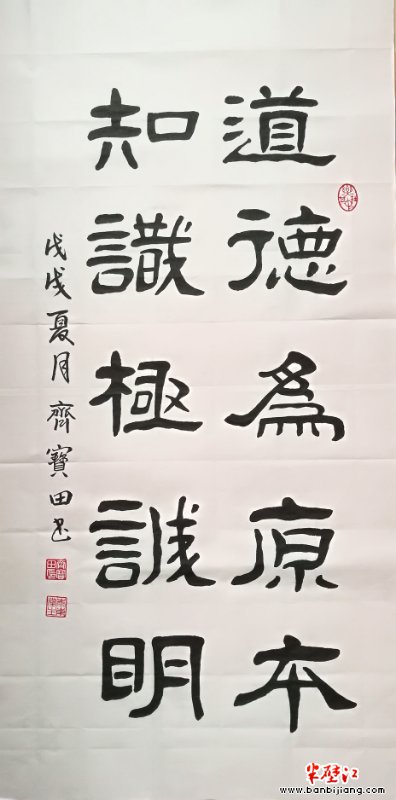 道德為原本
知識極誠明
戊戌夏月齊寶田书
半壁江
www.banbijiang.com